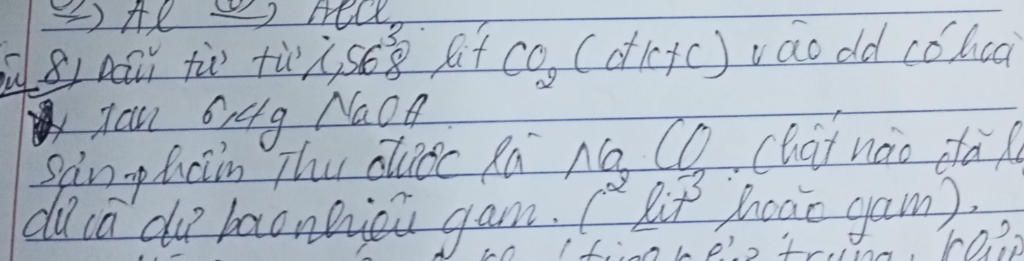 2) Al 2) AlCl3
8) Dẫn từ từ 1,568 lít CO2 (đktc) vào dd có hoà
tan 6,4g NaOH.
Sản phẩm thu được là Na2CO3. Chất nào đã
dư và dư bao nhiêu gam. (lít hoặc gam).